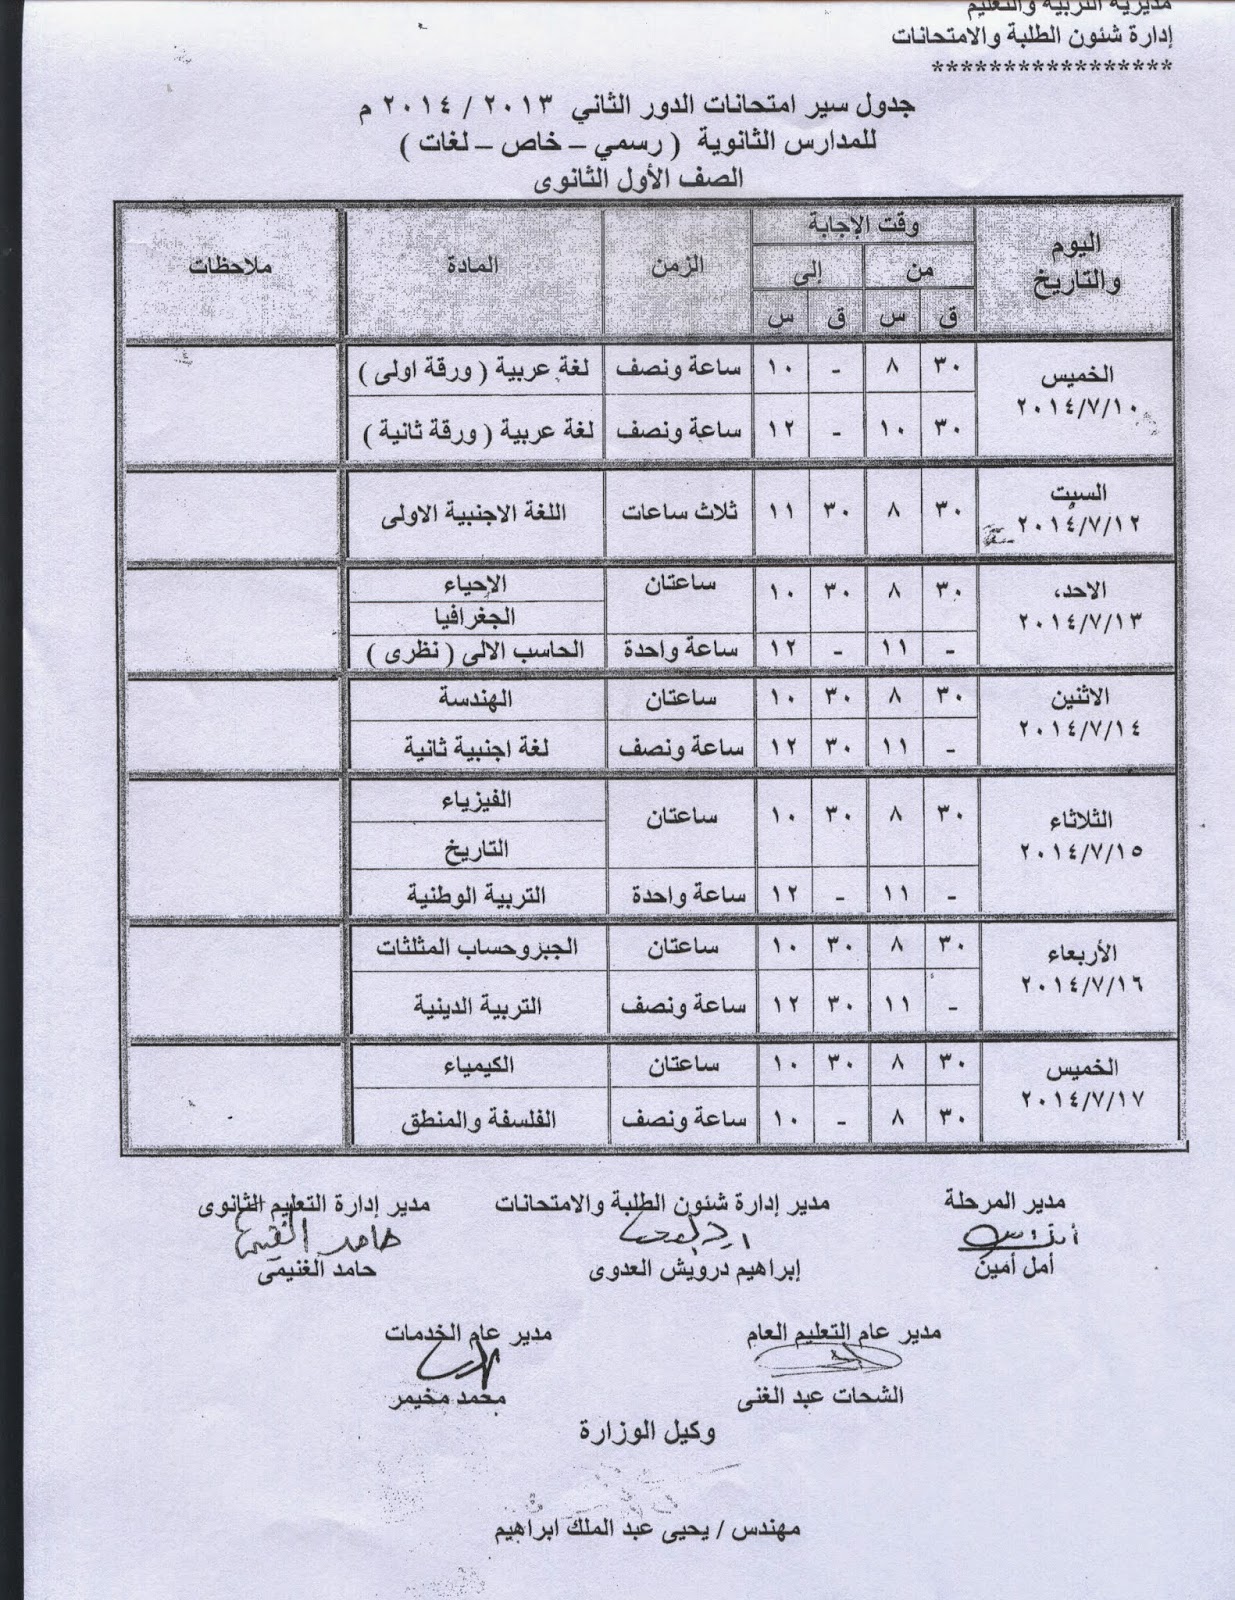 مديرية التربية والتعليم
إدارة شئون الطلبة والامتحانات
*****************
جدول سير امتحانات الدور الثاني ٢٠١٣ / ٢٠١٤ م
للمدارس الثانوية ( رسمي – خاص – لغات )
الصف الأول الثانوى
اليوم والتاريخ | وقت الإجابة | الزمن | المادة | ملاحظات
من | إلى
ق | س | ق | س
الخميس ٢٠١٤/٧/١٠ | ٣٠ | ٨ | - | ١٠ | ساعة ونصف | لغة عربية ( ورقة اولى )
٣٠ | ١٠ | - | ١٢ | ساعة ونصف | لغة عربية ( ورقة ثانية )
السبت ٢٠١٤/٧/١٢ | ٣٠ | ٨ | ٣٠ | ١١ | ثلاث ساعات | اللغة الاجنبية الاولى
الاحد، ٢٠١٤/٧/١٣ | ٣٠ | ٨ | ٣٠ | ١٠ | ساعتان | الإحياء
الجغرافيا
- | ١١ | - | ١٢ | ساعة واحدة | الحاسب الالى ( نظرى )
الاثنين ٢٠١٤/٧/١٤ | ٣٠ | ٨ | ٣٠ | ١٠ | ساعتان | الهندسة
- | ١١ | ٣٠ | ١٢ | ساعة ونصف | لغة اجنبية ثانية
الثلاثاء ٢٠١٤/٧/١٥ | ٣٠ | ٨ | ٣٠ | ١٠ | ساعتان | الفيزياء
التاريخ
- | ١١ | - | ١٢ | ساعة واحدة | التربية الوطنية
الأربعاء ٢٠١٤/٧/١٦ | ٣٠ | ٨ | ٣٠ | ١٠ | ساعتان | الجبر وحساب المثلثات
- | ١١ | ٣٠ | ١٢ | ساعة ونصف | التربية الدينية
الخميس ٢٠١٤/٧/١٧ | ٣٠ | ٨ | ٣٠ | ١٠ | ساعتان | الكيمياء
٣٠ | ٨ | - | ١٠ | ساعة ونصف | الفلسفة والمنطق
مدير المرحلة | مدير إدارة شئون الطلبة والامتحانات | مدير إدارة التعليم الثانوى
حامد الغنيمى
أمل أمين | إبراهيم درويش العدوى | حامد الغنيمى
مدير عام التعليم العام | مدير عام الخدمات
الشحات عبد الغنى | محمد مخيمر
وكيل الوزارة
مهندس / يحيى عبد الملك ابراهيم